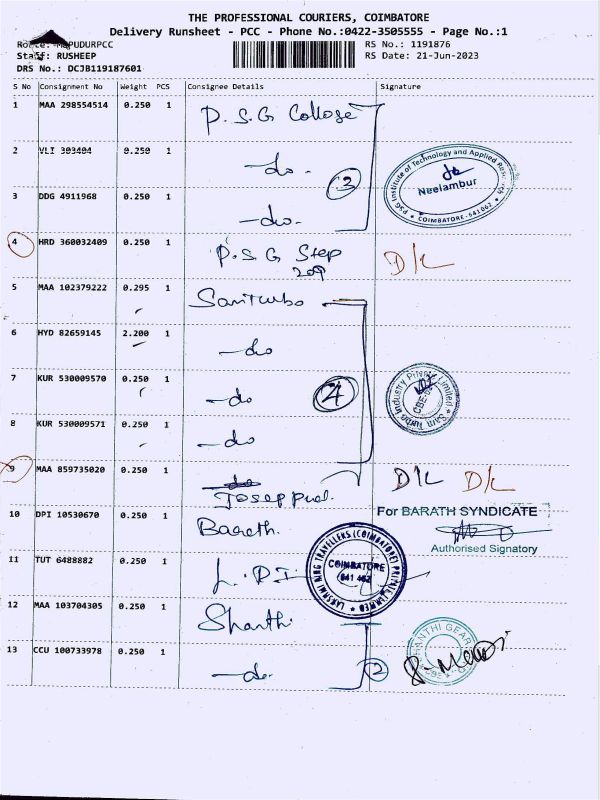 THE PROFESSIONAL COURIERS, COIMBATORE
Delivery Runsheet - PCC - Phone No.:0422-3505555 - Page No.:1
RS No.: 1191876
Staff: RUSHEEP
RS Date: 21-Jun-2023
DRS No.: DCJB119187601
S No Consignment No Weight PCS Consignee Details Signature
1 MAA 298554514 0.250 1 P.S.G College
2 VLI 303404 0.250 1 -do-
3
PSG Institute of Technology and Applied Research
Neelambur
COIMBATORE-641062
3 DDG 4911968 0.250 1 -do-
4 HRD 360032409 0.250 1 P.S.G Step D/L
209
5 MAA 102379222 0.295 1
6 HYD 82659145 2.200 1 -do
7 KUR 530009570 0.250 1 -do
4
Sam Turbo Industry Private Limited
CBE
8 KUR 530009571 0.250 1 -do
9 MAA 859735020 0.250 1 D/L D/L
10 DPI 10530670 0.250 1 Barath.
For BARATH SYNDICATE
Authorised Signatory
11 TUT 6488882 0.250 1
LAKSHMI RING TRAVELLERS (COIMBATORE) PRIVATE LIMITED
COIMBATORE
641 402
12 MAA 103704305 0.250 1 Shanthi
SHANTHI GEARS
13 CCU 100733978 0.250 1 -do- 2